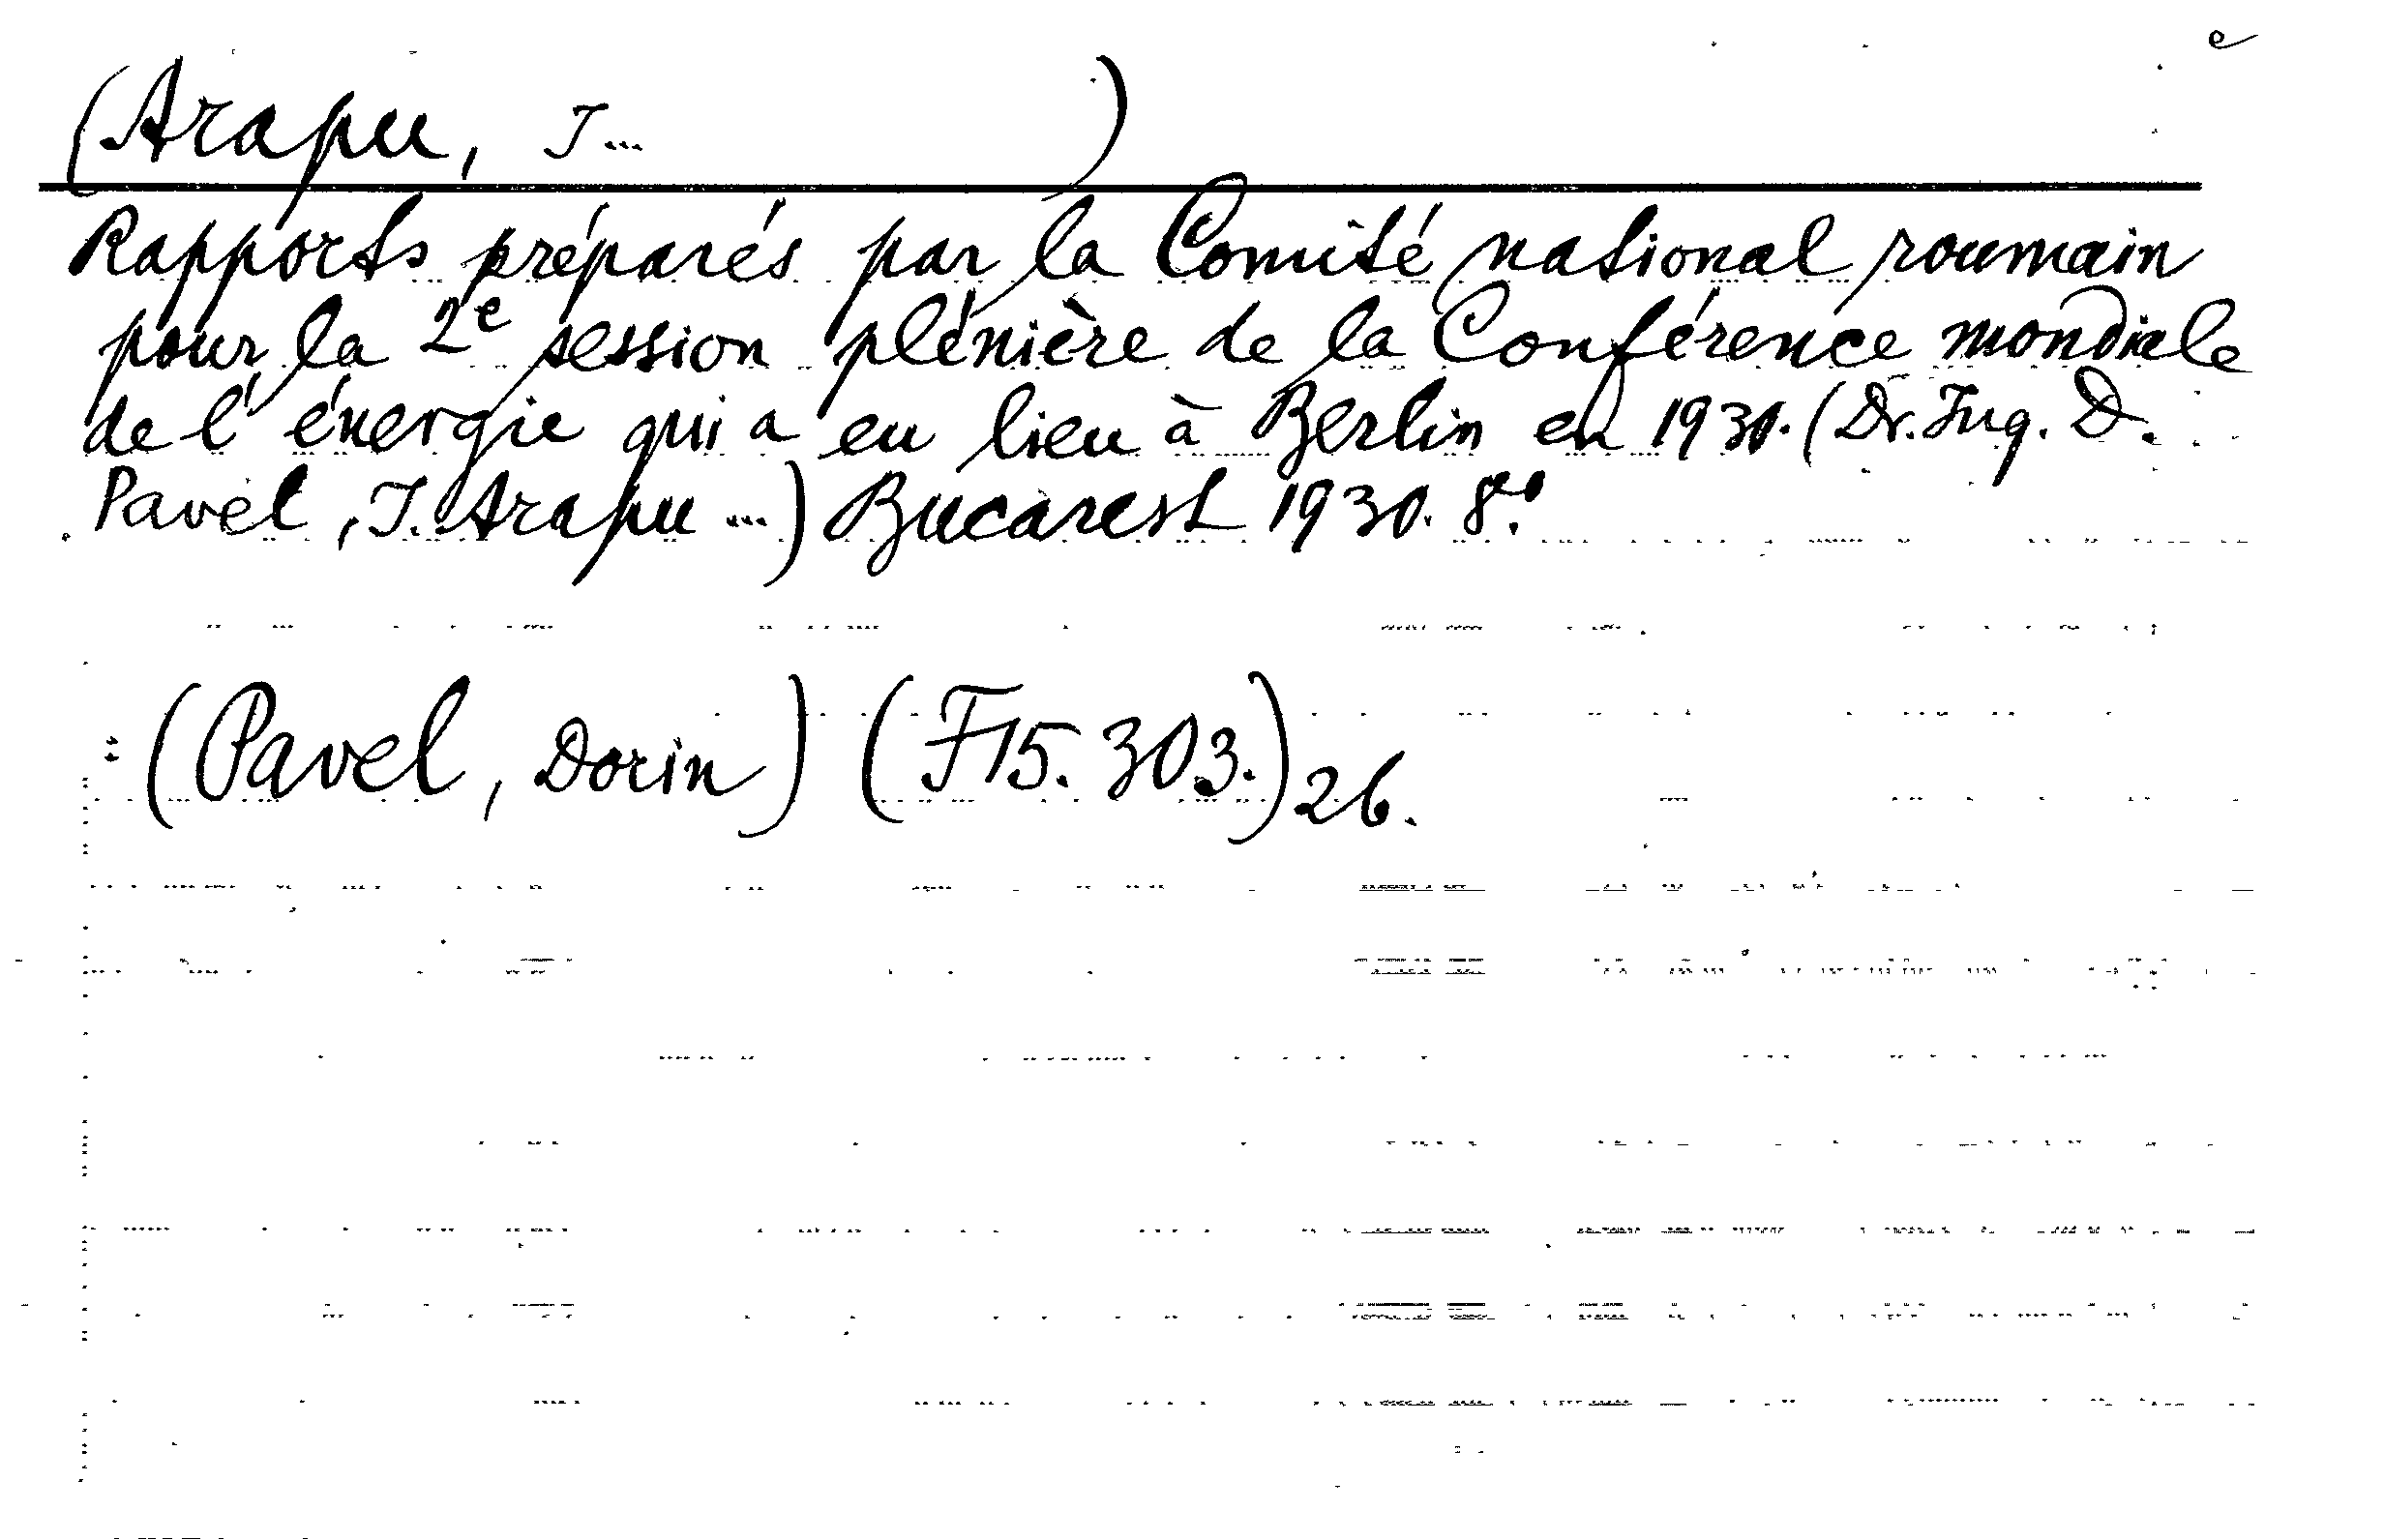 e
(Arapu, I... )
Rapports préparés par la Comité national roumain
pour la 2e session plénière de la Conférence mondiale
de l'énergie qui a eu lieu à Berlin en 1930. (Dr. Ing. D.
Pavel, I. Arapu ...) Bucarest 1930. 8o.
: (Pavel, Dorin) (F15.303.) 26.